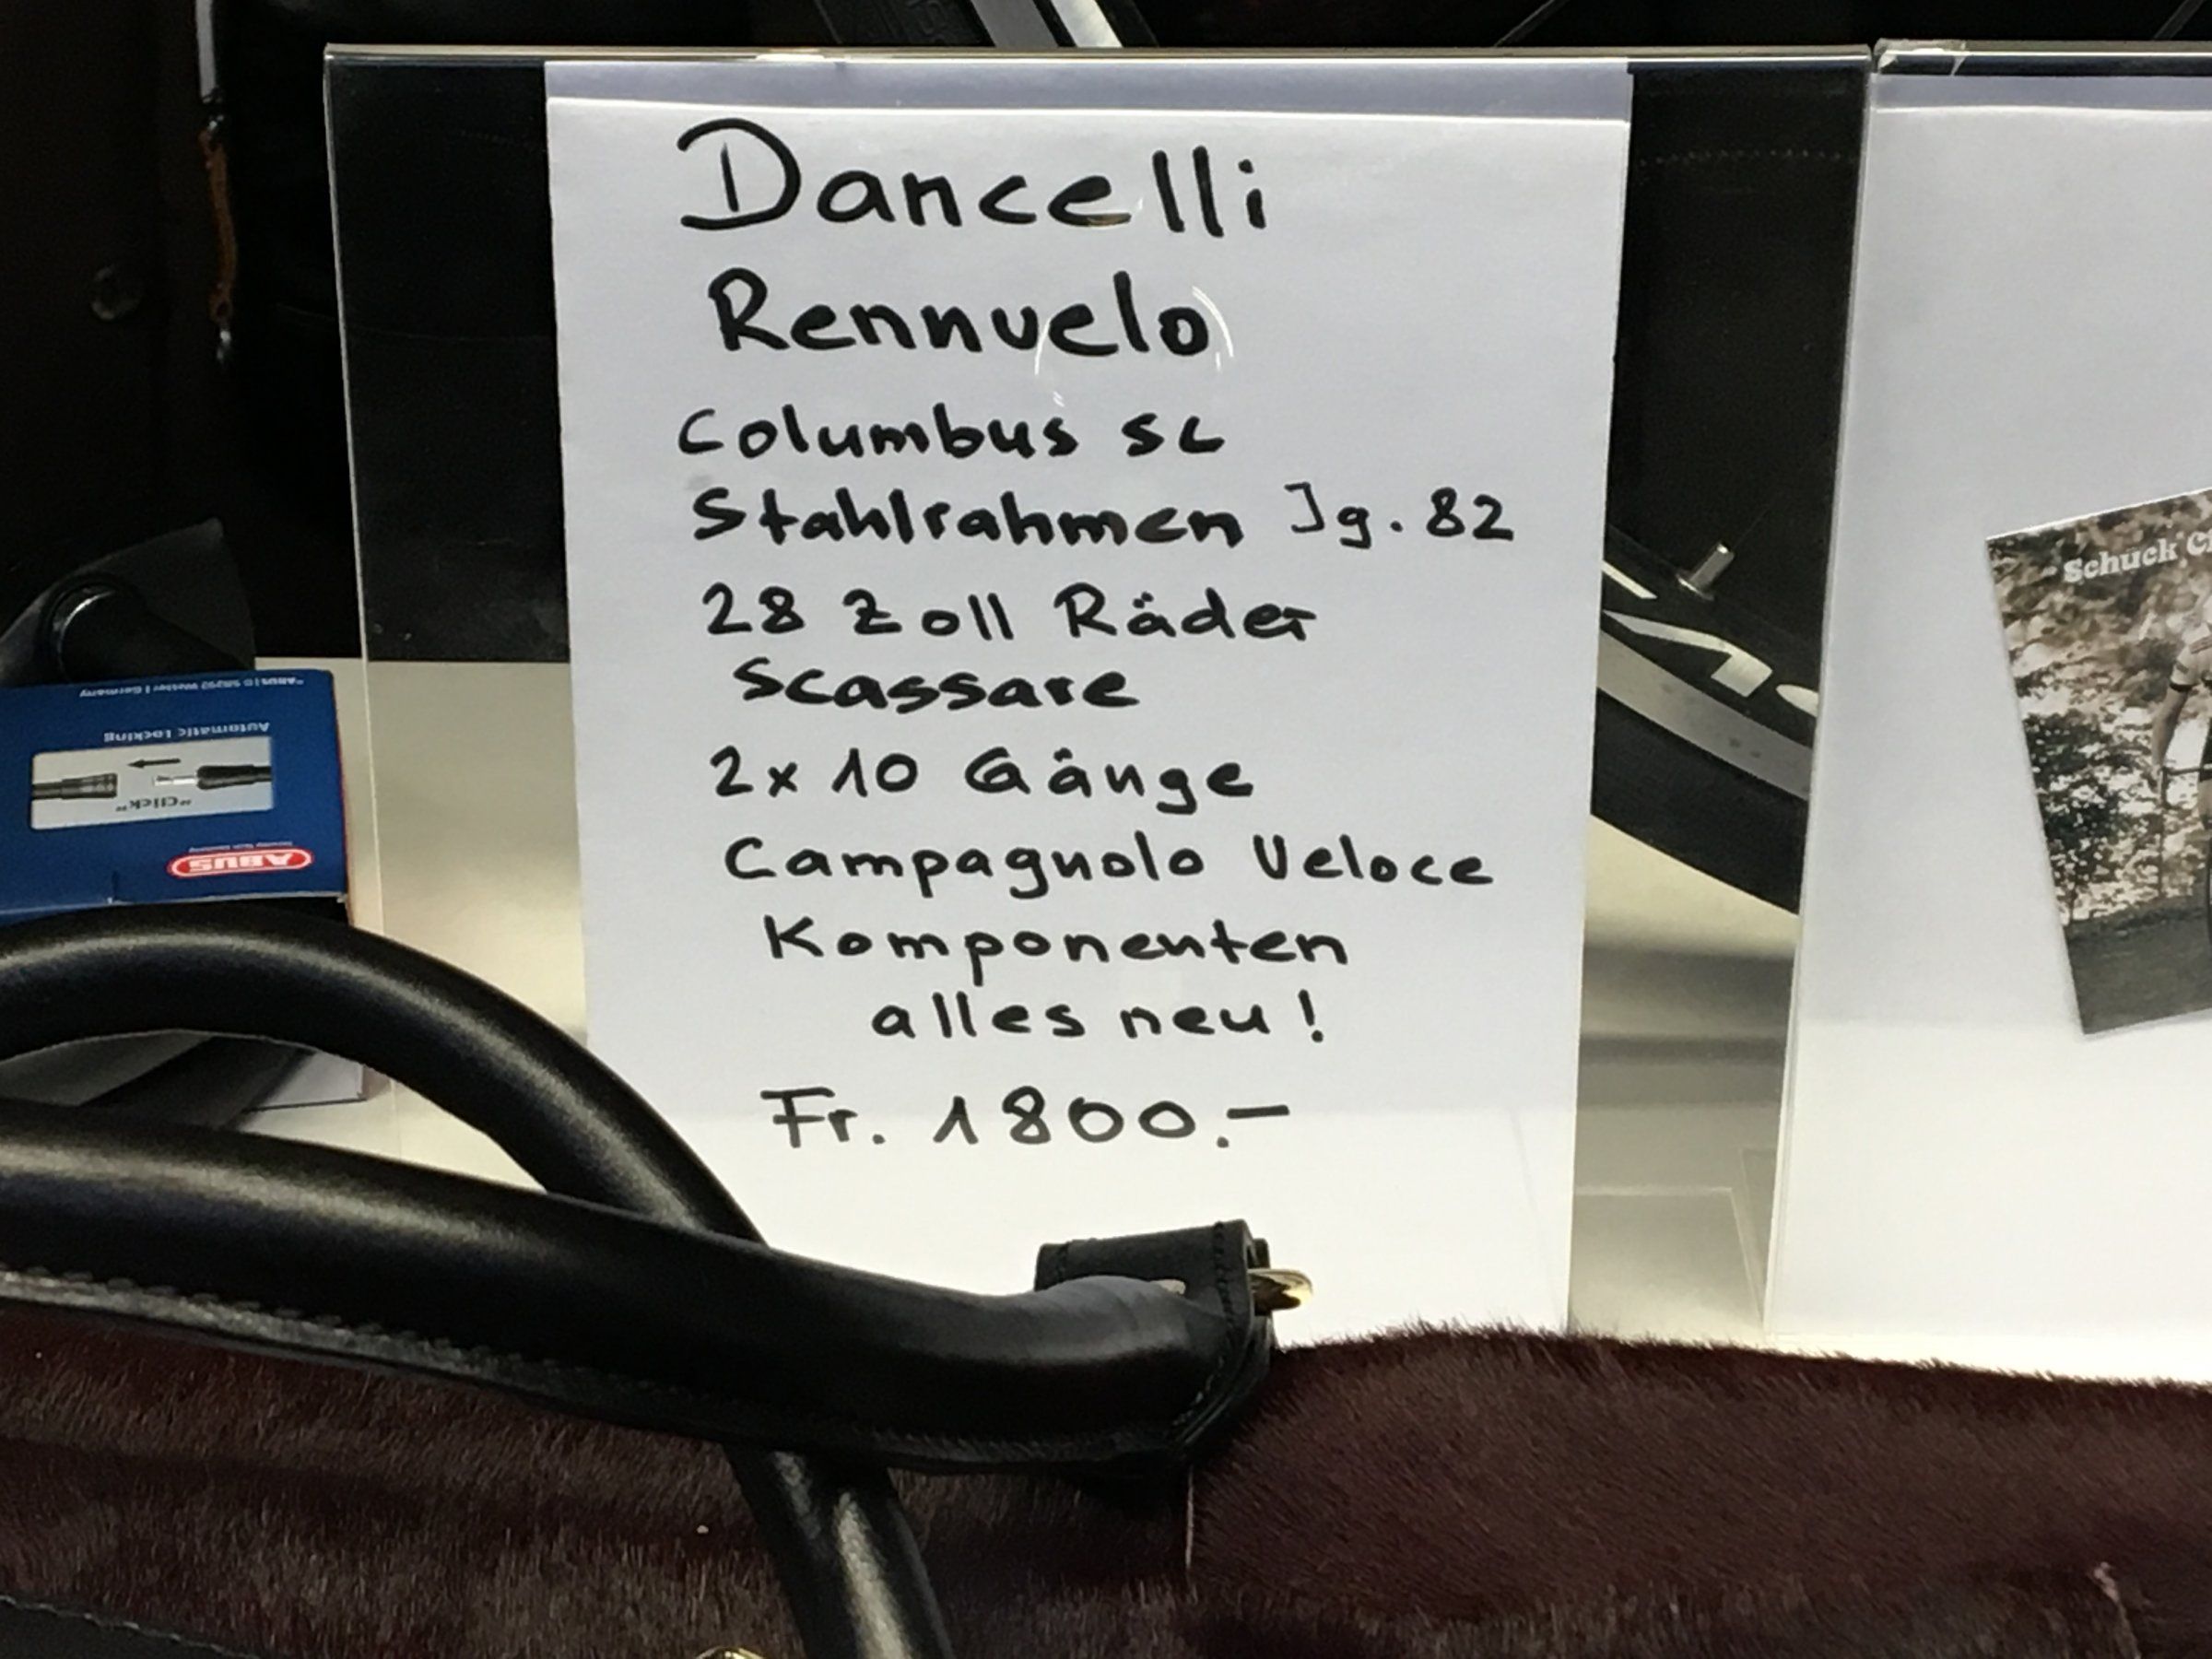 Dancelli
Rennvelo
Columbus SL
Stahlrahmen Jg. 82
28 Zoll Räder
Scassare
2x10 Gänge
Campagnolo Veloce
Komponenten
alles neu!
Fr. 1800.-
Schuck
Automatic Locking
"Click"
ABUS